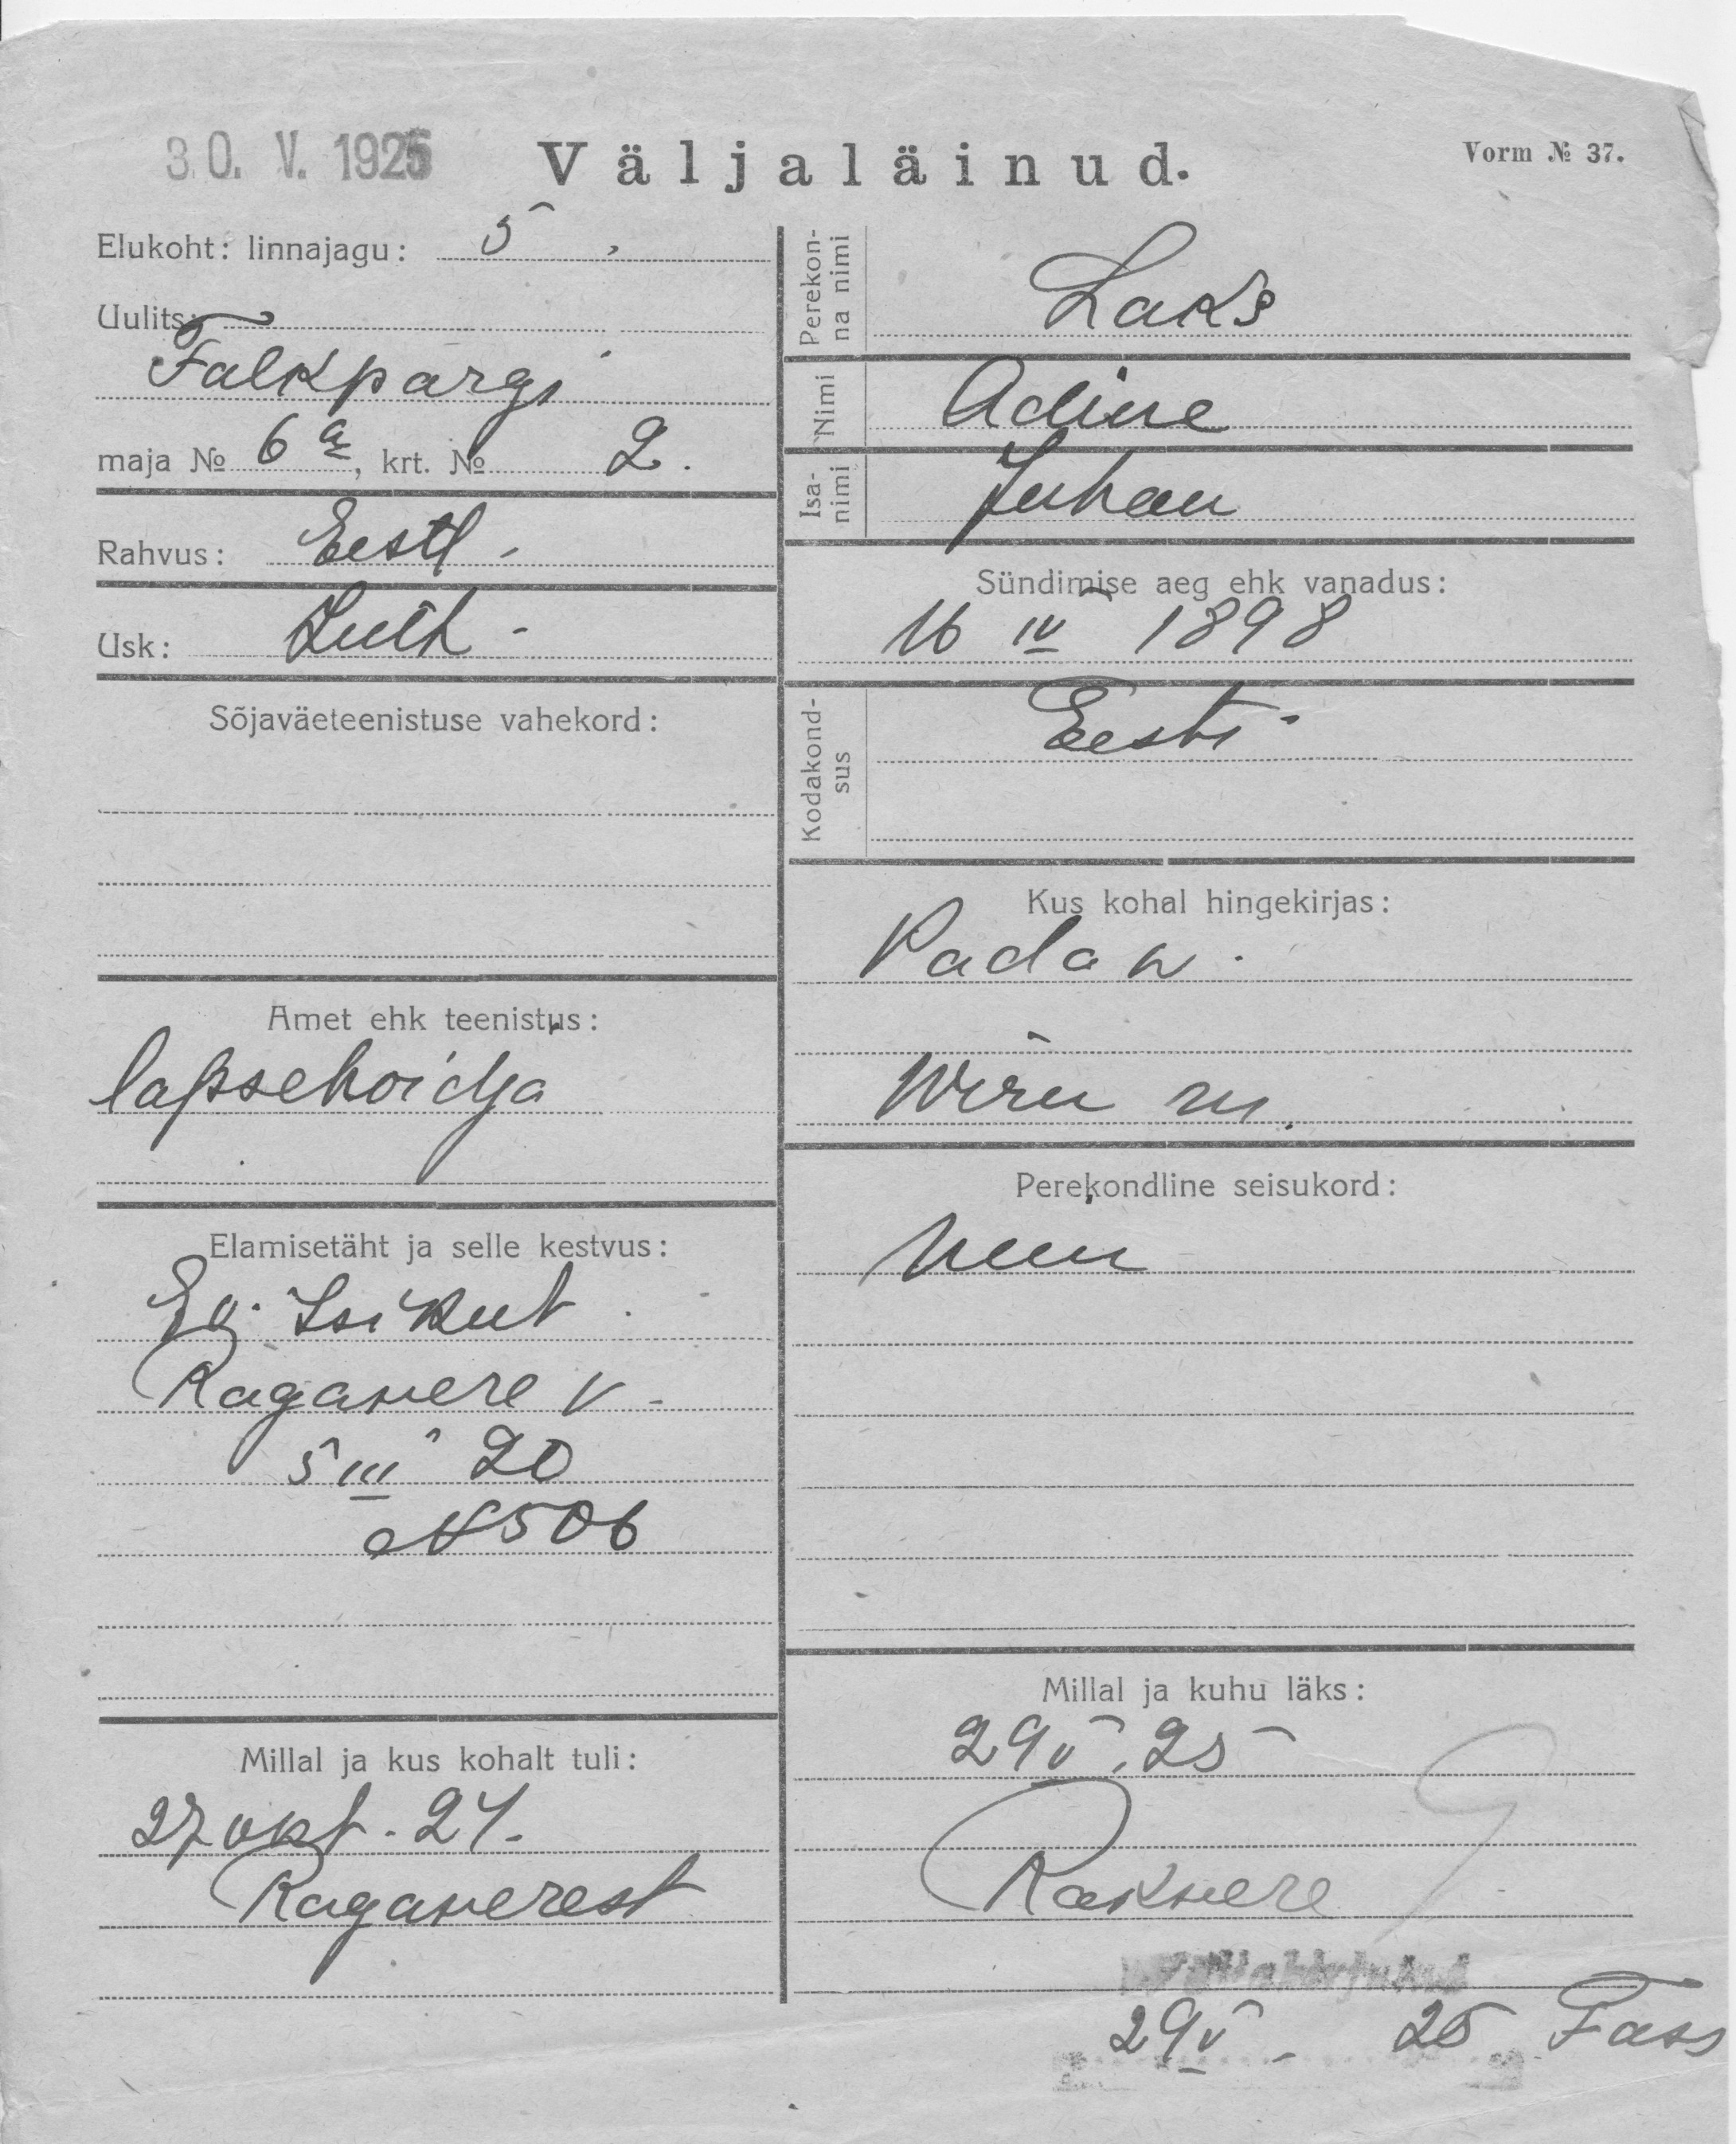 30. V. 1925
Väljaläinud.
Vorm № 37.
Elukoht: linnajagu: 5
Uulits:
Falkpargi
maja № 6a, krt. № 2.
Rahvus: Eestl -
Usk: Luth -
Sõjaväeteenistuse vahekord:
Amet ehk teenistus:
lapsehoidja
Elamisetäht ja selle kestvus:
Isikut
Ragavere v -
5 III 20
N 506
Millal ja kus kohalt tuli:
27 okt. 24.
Ragaverest
Perekonna nimi
Laks
Nimi
Adine
Isanimi
Juhan
Sündimise aeg ehk vanadus:
16 IV 1898
Kodakondsus
Eesti
Kus kohal hingekirjas:
Pada w.
Wiru m.
Perekondline seisukord:
Millal ja kuhu läks:
29 V. 25
Rakwere
29 V - 25 Fass